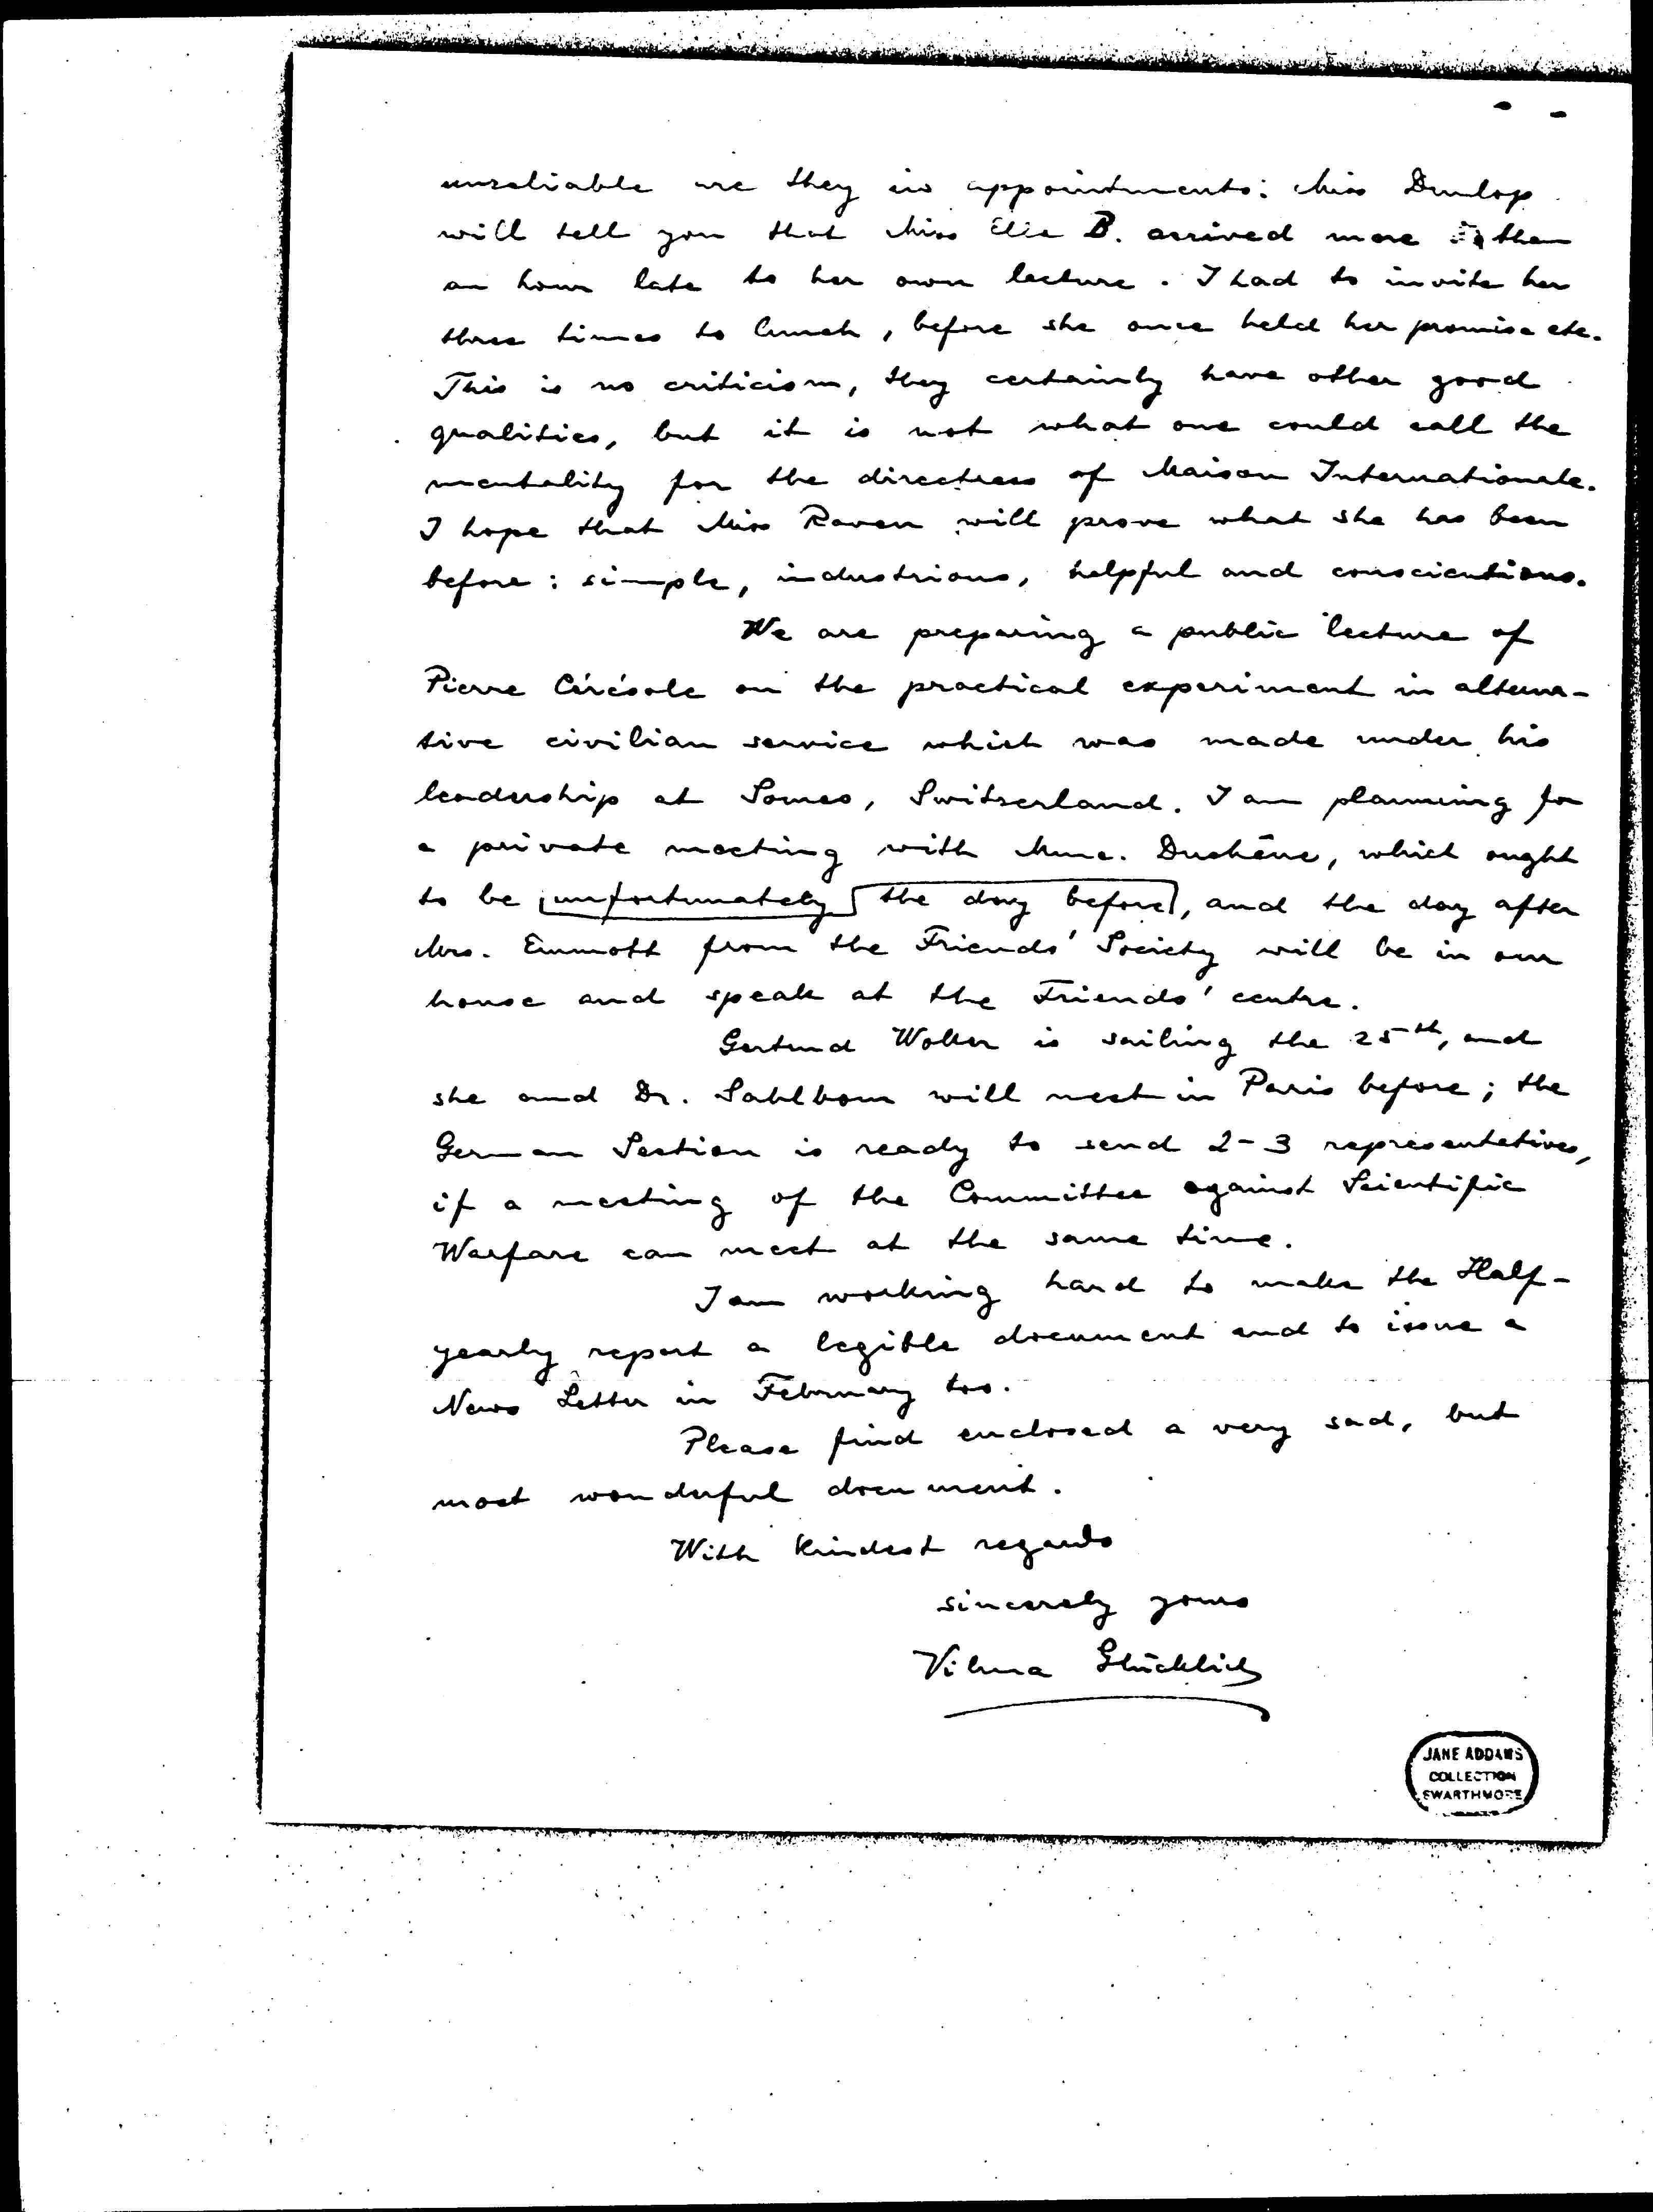 unreliable are they in appointments: Miss Dunlop
will tell you that Miss Elle B. arrived more than
an hour late to her own lecture. I had to invite her
three times to lunch, before she once held her promise etc.
This is no criticism, they certainly have other good
qualities, but it is not what one could call the
mentality for the directress of Maison Internationale.
I hope that Miss Raven will prove what she has been
before: simple, industrious, helpful and conscientious.
We are preparing a public lecture of
Pierre Cérésole on the practical experiment in alterna-
tive civilian service which was made under his
leadership at Someo, Switzerland. I am planning for
a private meeting with Mme. Duchêne, which ought
to be unfortunately the day before, and the day after
Mrs. Emmott from the Friends' Society will be in our
house and speak at the Friends' centre.
Gertrud Wolter is sailing the 25th, and
she and Dr. Sahlbom will meet in Paris before; the
German Section is ready to send 2-3 representatives,
if a meeting of the Committee against Scientific
Warfare can meet at the same time.
I am working hard to make the Half-
yearly report a legible document and to issue a
News Letter in February too.
Please find enclosed a very sad, but
most wonderful document.
With kindest regards
sincerely yours
Vilma Glücklich
JANE ADDAMS
COLLECTION
SWARTHMORE